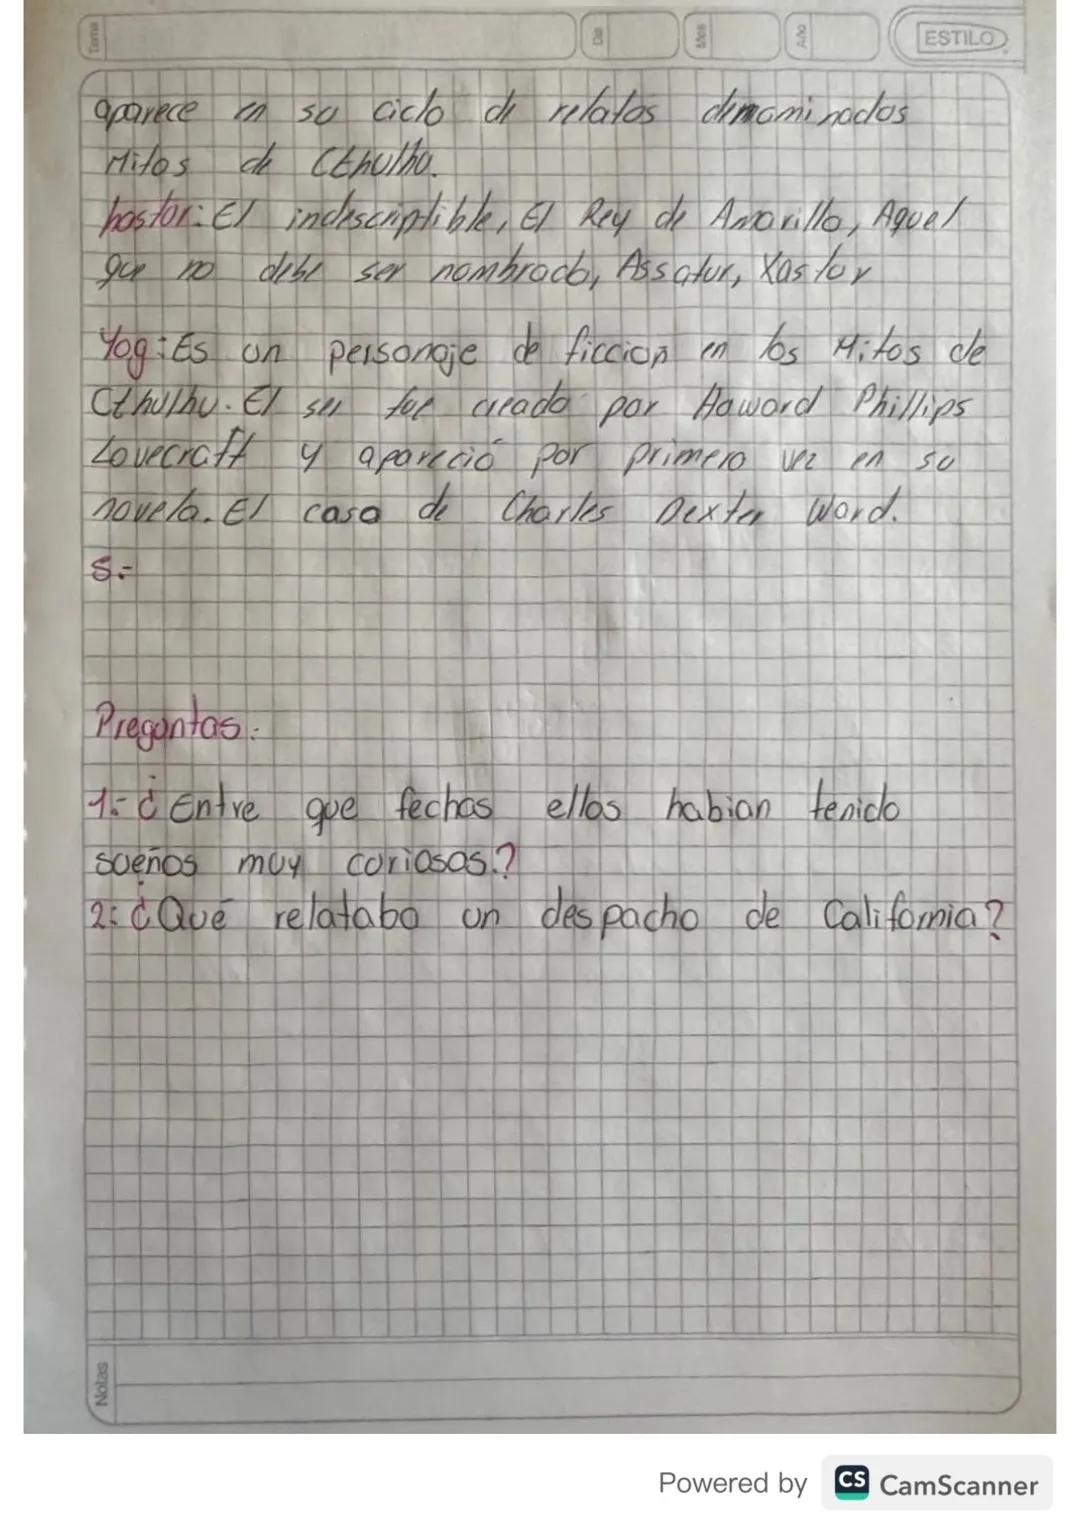 Tema Día Mes Año ESTILO
aparece en su ciclo de relatos demominados
Mitos de Cthulhu.
hastor: El indescriptible, El Rey de Amarillo, Aquel
que no debe ser nombrado, Assatur, Xastor
Yog: Es un personaje de ficcion en los Mitos de
Cthulhu. El ser fue creado por Howard Phillips
Lovecraft y apareció por primera vez en su
novela. El caso de Charles Dexter Ward.
5.-
Preguntas:
1.- ¿Entre que fechas ellos habian tenido
sueños muy curiosos.?
2.- ¿Qué relataba un despacho de California?
Notas
Powered by CS CamScanner